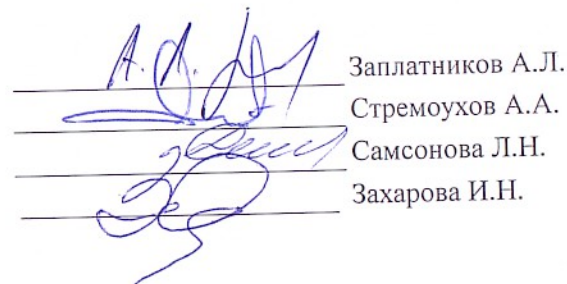 Заплатников А.Л.
Стремоухов А.А.
Самсонова Л.Н.
Захарова И.Н.